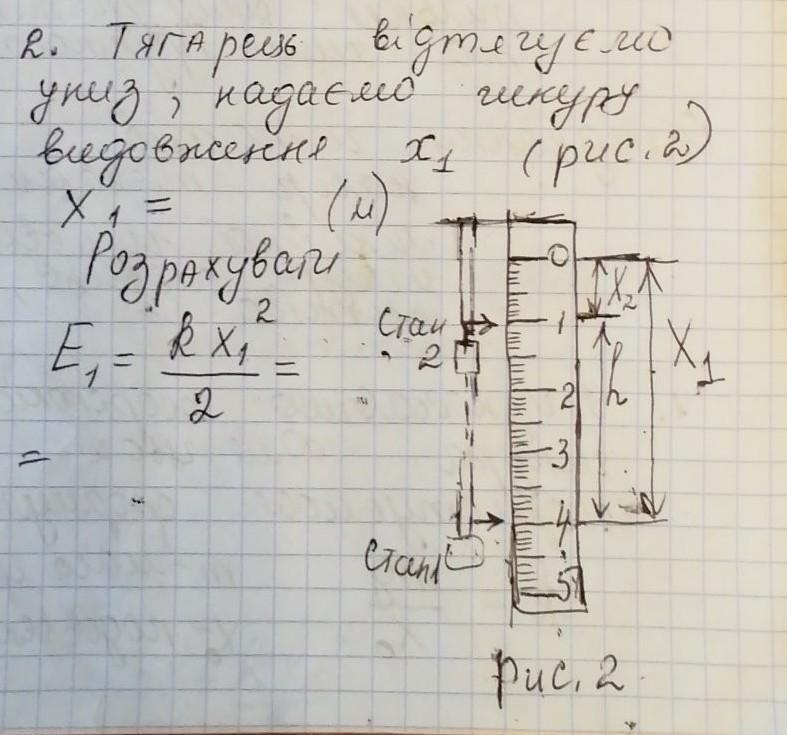 2. Тягарець відтягуємо
униз, надаємо шнуру
видовження x₁ (рис. 2)
X₁ = (м)
Розрахувати
E₁ = k x₁² / 2 =
=
Стан
2
Стан 1
0
1
2
3
4
5
X₂
h
X₁
рис. 2